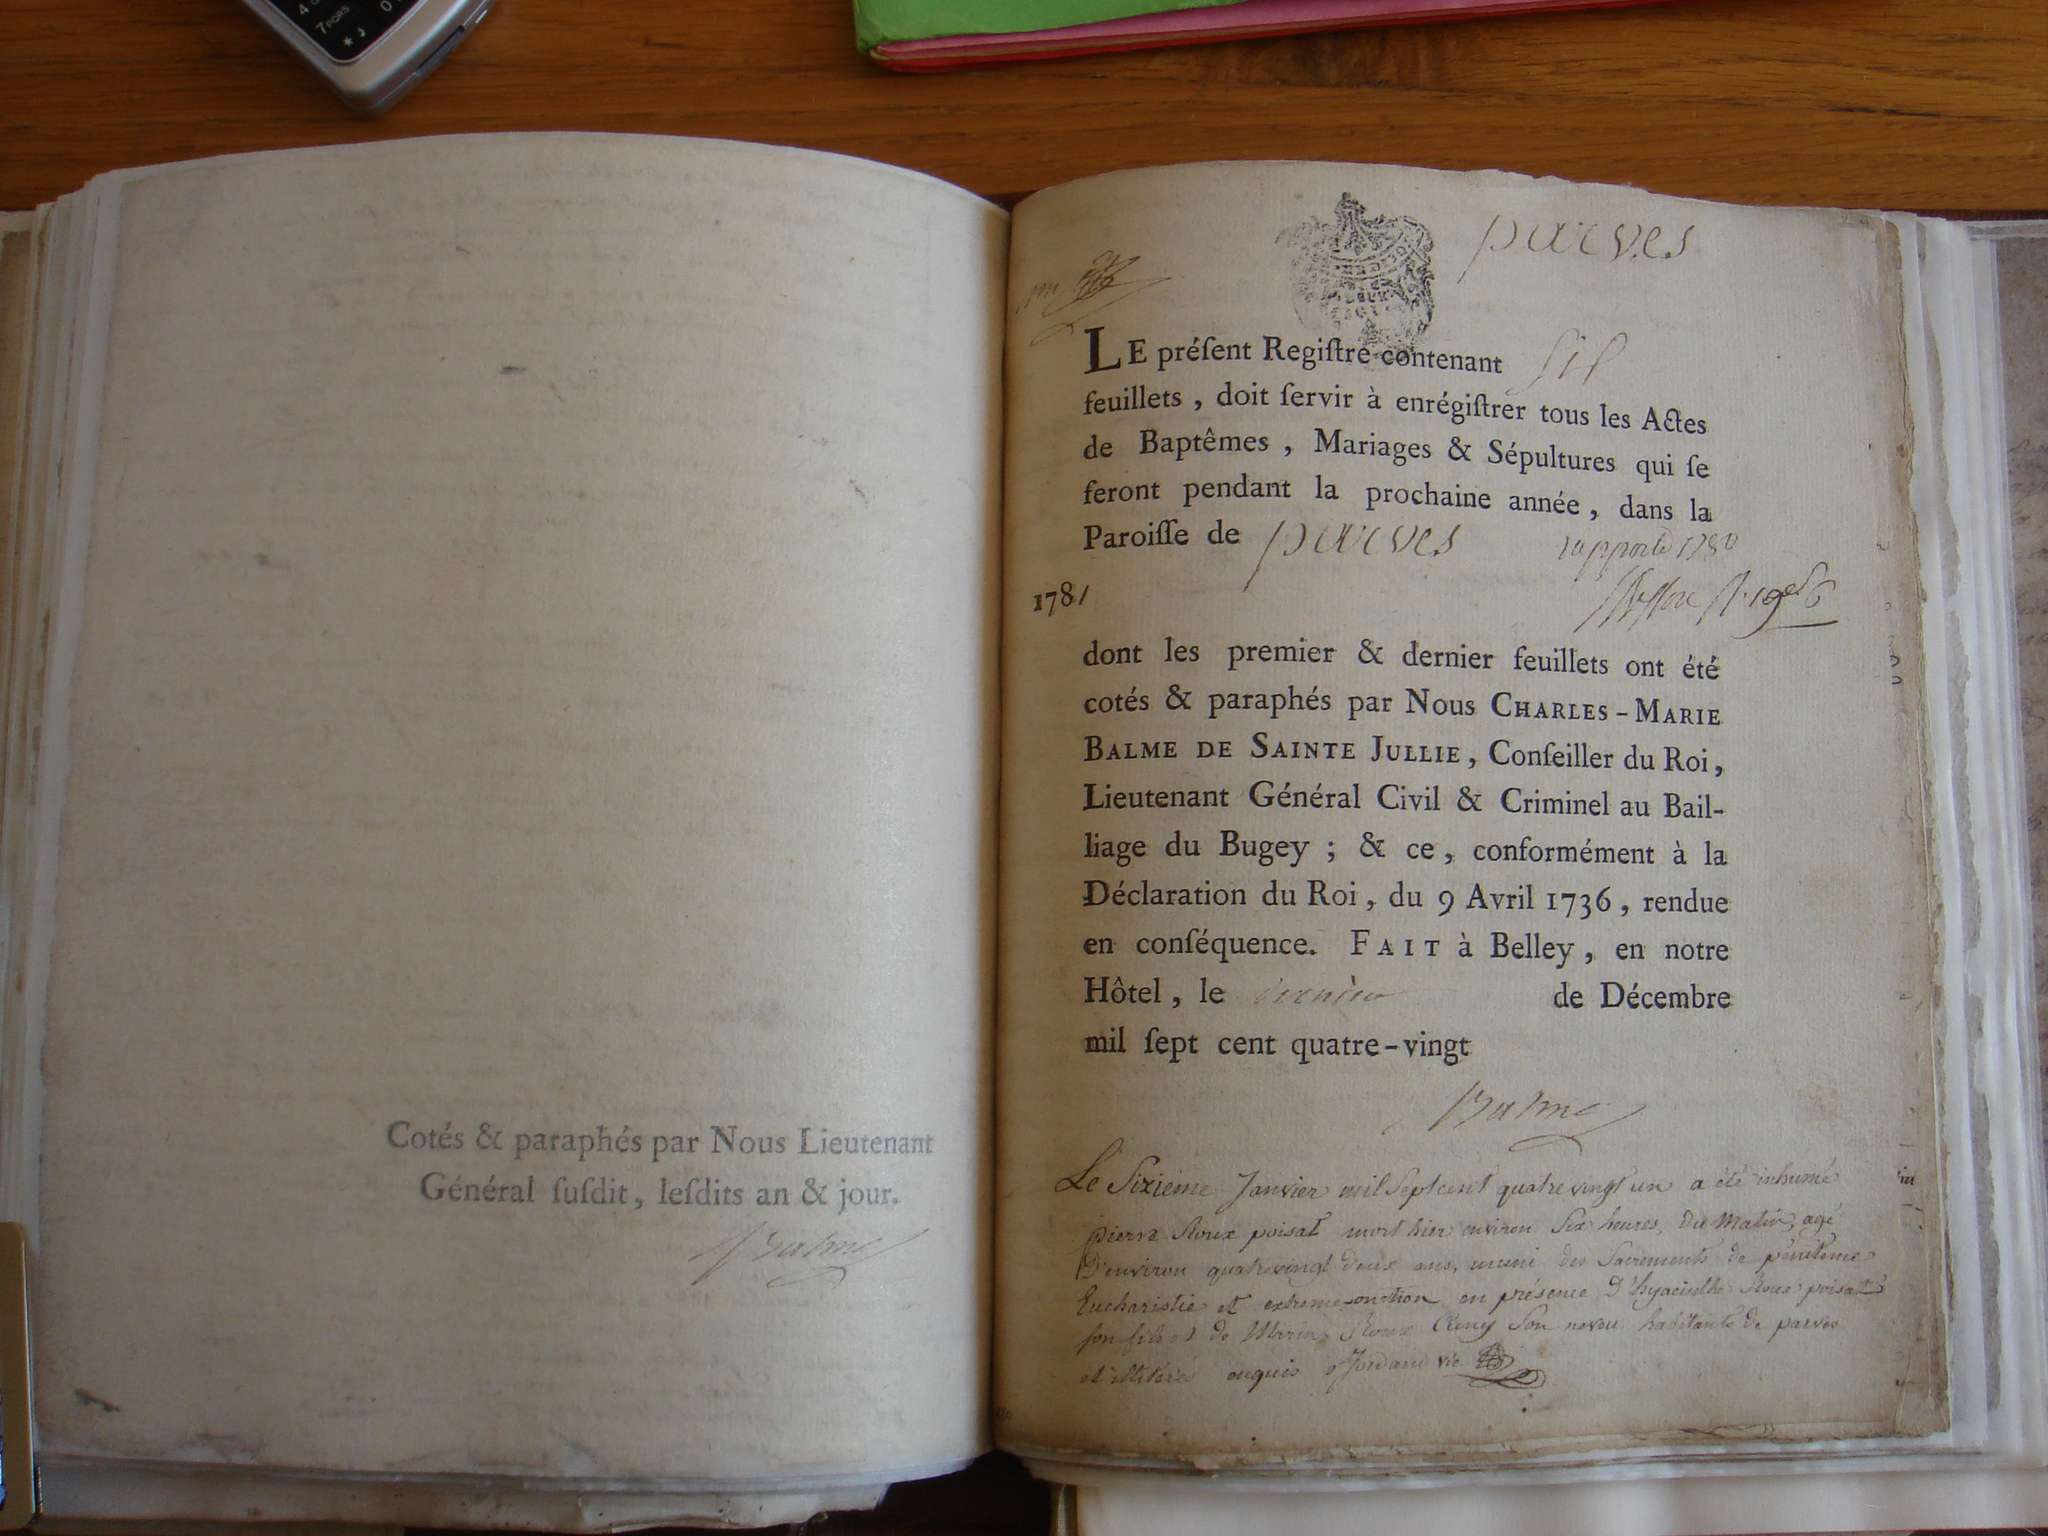 Cotés & paraphés par Nous Lieutenant
Général ſuſdit, leſdits an & jour.
Balme
parves
LE préſent Regiſtre contenant six
feuillets, doit ſervir à enrégiſtrer tous les Actes
de Baptêmes, Mariages & Sépultures qui ſe
feront pendant la prochaine année, dans la
Paroiſſe de parves
rapporté 1780
1781
dont les premier & dernier feuillets ont été
cotés & paraphés par Nous CHARLES-MARIE
BALME DE SAINTE JULLIE, Conſeiller du Roi,
Lieutenant Général Civil & Criminel au Bail-
liage du Bugey; & ce, conformément à la
Déclaration du Roi, du 9 Avril 1736, rendue
en conſéquence. FAIT à Belley, en notre
Hôtel, le dernier de Décembre
mil ſept cent quatre-vingt
Balme
Le Sixieme Janvier mil Sept cent quatre vingt un a été inhumé
pierre Roux poisat mort hier environ Six heures, du Matin, agé
D'environ quatrevingt deux ans, muni des Sacrements de pénitence
Eucharistie et extreme onction en présence D'hyacinthe Roux poisat
son fils et de Roux Son neveu habitants de parves
et illiterés enquis Jordain vic